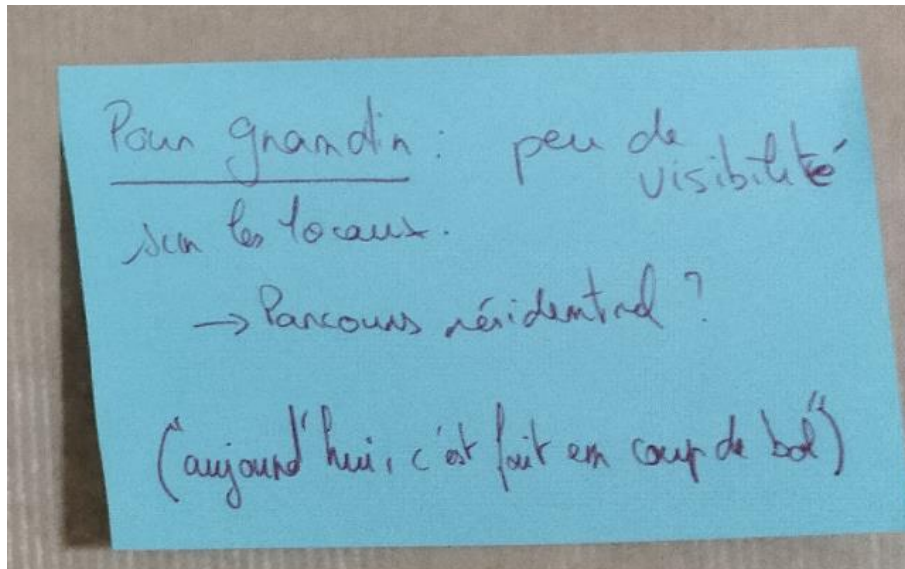 Pour grandir : peu de visibilité
sur les locaux.
→ Parcours résidentiel ?
("aujourd'hui, c'est fait en coup de bol")